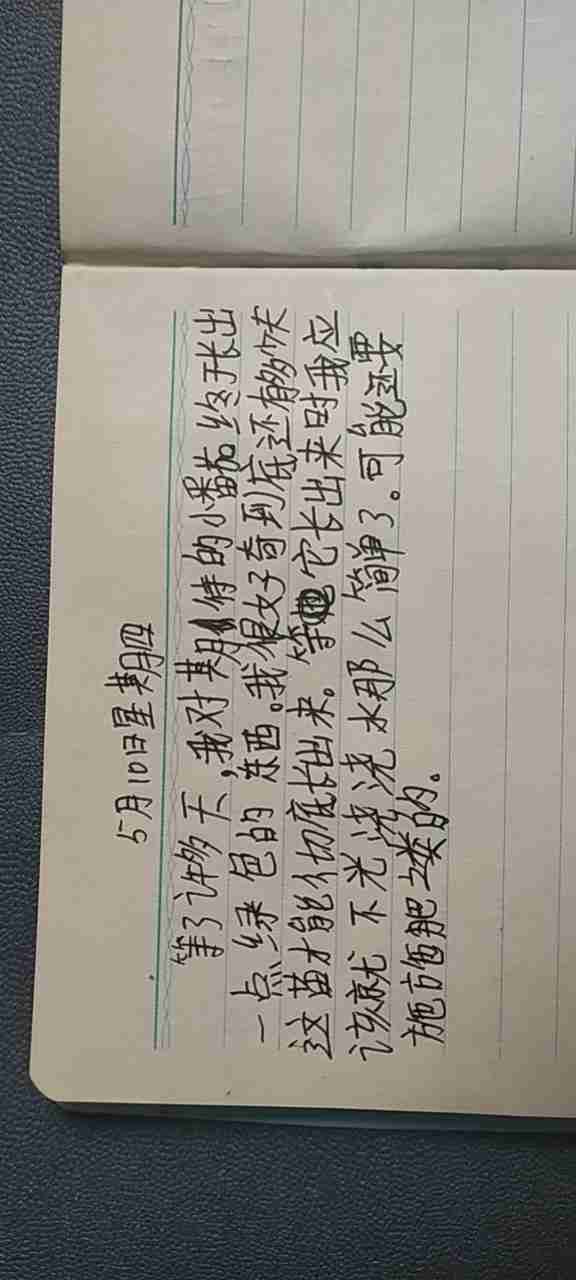 5月10日星期四
等了许多天,我对期待的小番茄终于长出
一点绿包的东西。我很好奇到底还有多少天
这苗才能彻底长出来。等它长出来时我应
该就不光浇浇水那么简单了。可能还要
施施肥之类的。